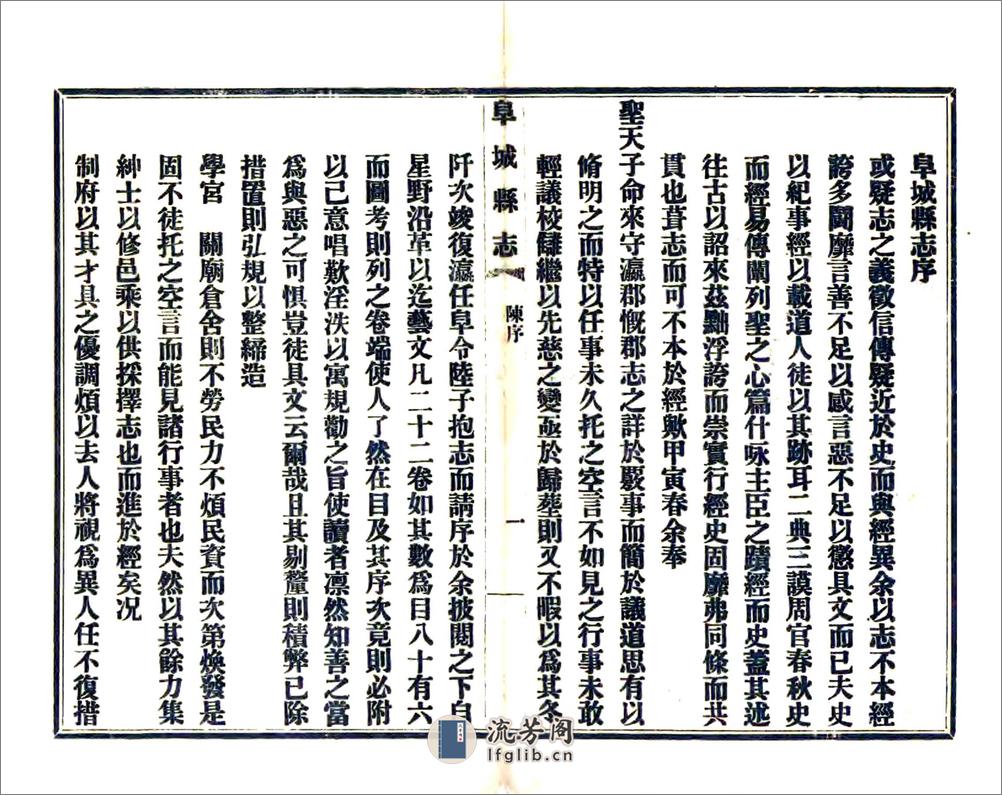 阜城縣志序
或疑志之義徵信傳疑近於史而與經異余以志不本經
誇多鬭靡言善不足以感言惡不足以懲具文而已夫史
以紀事經以載道人徒以其跡耳二典三謨周官春秋史
而經易傳闡列聖之心篇什咏主臣之蹟經而史蓋其述
往古以詔來茲黜浮誇而崇實行經史固靡弗同條而共
貫也葺志而可不本於經歟甲寅春余奉
聖天子命來守瀛郡慨郡志之詳於覈事而簡於議道思有以
脩明之而特以任事未久托之空言不如見之行事未敢
輕議校讎繼以先慈之變亟於歸塟則又不暇以為其冬
阜城縣志
陳序
一
阡次竣復瀛任阜令陸子抱志而請序於余披閱之下自
星野沿革以迄藝文凡二十二卷如其數爲目八十有六
而圖考則列之卷端使人了然在目及其序次竟則必附
以己意唱歎淫泆以寓規勸之旨使讀者凛然知善之當
爲與惡之可惧豈徒具文云爾哉且其剔釐則積弊已除
措置則弘規以整締造
學宮　關廟倉舍則不勞民力不煩民資而次第煥發是
固不徒托之空言而能見諸行事者也夫然以其餘力集
紳士以修邑乘以供採擇志也而進於經矣况
制府以其才具之優調煩以去人將視爲異人任不復措
流芳阁
lfglib.cn